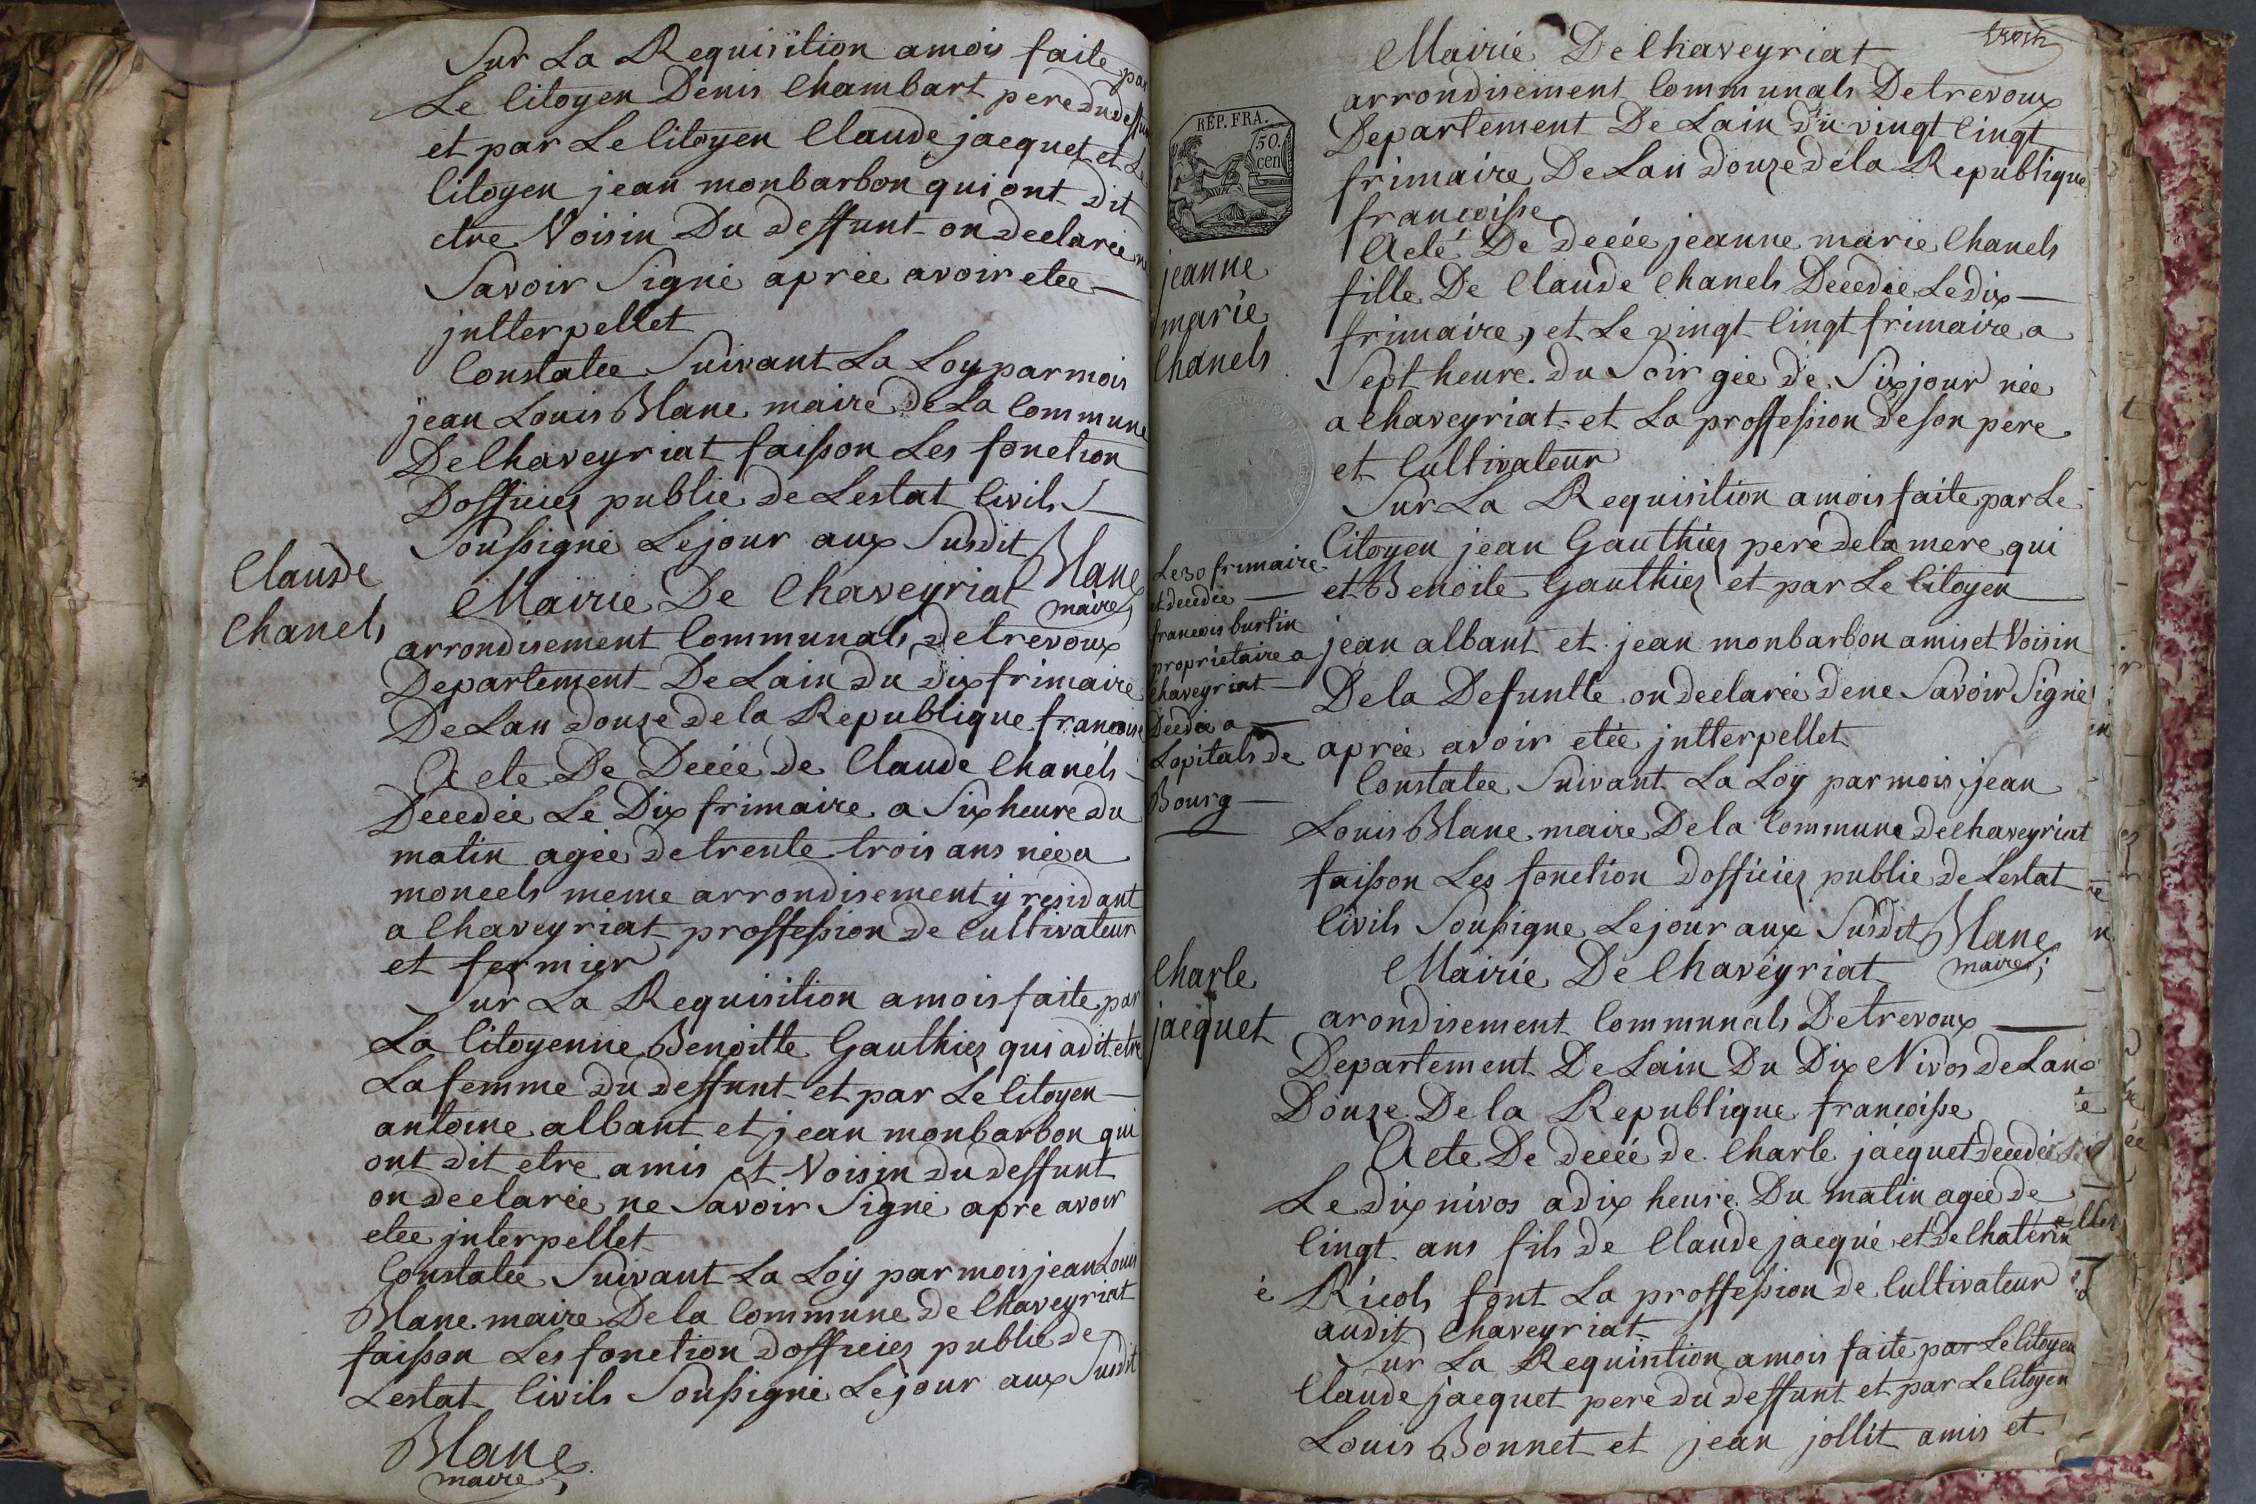 Sur La Requisition amois faite par
Le Citoyen Denis Chambart pere du deffunt
et par Le Citoyen Claude jacquet et Le
Citoyen jean monbarbon qui ont dit
etre Voisin Du deffunt on declarée ne
Savoir Signé aprée avoir etee
jntterpellet
Constatee Suivant La Loy par mois
jean Louis Blanc maire De La Commune
De Chaveyriat faisson Les fonction
Dofficiez public de Lestat Civils
Soussigné Le jour aux Susdit Blanc
maire
Claude
Chanels
Mairie De Chaveyriat
arrondisement Communals De trevoux
Departement De Lain du dix frimaire
De Lan douze de la Republique francoise
Acte De Decéé de Claude Chanels
Decedée Le Dix frimaire a Six heure du
matin agée de trente trois ans née a
moncels meme arrondisement y residant
a Chaveyriat proffession de Cultivateur
et fermier
Sur La Requisition amois faite par
La Citoyenne Benoitte Gauthiez qui a dit etre
La femme du deffunt et par Le Citoyen
antoine albant et jean monbarbon qui
ont dit etre amis et Voisin du deffunt
on declarée ne Savoir Signé apre avoir
etee jnterpellet
Constatée Suivant La Loÿ par mois jean Louis
Blanc maire De la Commune de Chaveyriat
faisson Les fonction dofficiez public de
Lestat Civils Soussigné Le jour aux Susdit
Blanc
maire
trois
REP. FRA.
50.
cen
Mairie De Chaveyriat
arrondisement Communals De trevoux
Departement De Lain du vingt Cingt
frimaire De Lan douze de la Republique
francoisse
jeanne
marie
Chanels
Acte De decéé jeanne marie Chanels
fille De Claude Chanels Decedée Le dix
frimaire, et Le vingt Cingt frimaire a
Sept heure du Soir gée de Six jour née
a Chaveyriat et La proffession de son pere
et Cultivateur
Sur La Requisition amois faite par Le
Citoyen jean Gauthiez pere de la mere qui
et Benoite Gauthiez et par Le Citoyen
jean albant et jean monbarbon amis et Voisin
De la Defuntte on declarée de ne Savoir Signé
aprée avoir etée jntterpellet
Le 30 frimaire
et decedée
francois burtin
proprietaire a
Chaveyriat
Decdée a
Lopitals de
Bourg
Constatee Suivant La Loÿ par mois jean
Louis Blanc maire De la Commune de Chaveyriat
faisson Les fonction dofficiez public de Lestat
Civils Soussigné Le jour aux Susdit Blanc
maire
Charle
jacquet
Mairie De Chaveyriat
arondisement Communals De trevoux
Departement De Lain Du Dix Nivos de Lan
Douze De la Republique francoisse
Acte De decéé de Charle jacquet decedée
Le dix nivos a dix heure Du matin agée de
Cingt ans fils de Claude jacqué et de Chaterin
é Ricols font La proffession de Cultivateur
audit Chaveyriat
Sur La Requisition amois faite par Le Citoyen
Claude jacquet pere du deffunt et par Le Citoyen
Louis Bonnet et jean jollit amis et